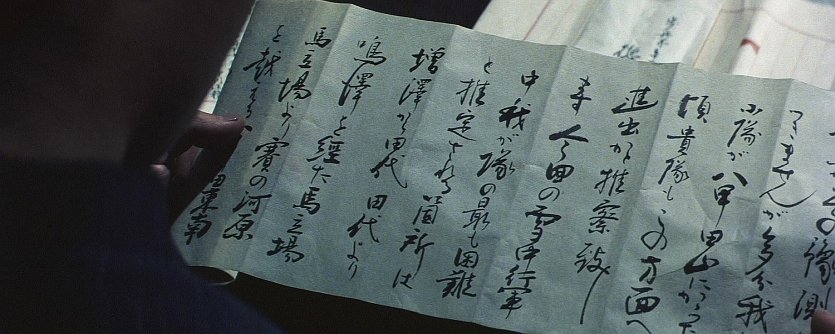 の豫測
つきませんが多分我
小隊が八甲田山にかゝった
頃貴隊もこの方面へ
進出かと推察致し
ます今回の雪中行軍
中我が隊の最も困難
と推定される箇所は
増澤から田代 田代より
鳴澤を経た馬立場
馬立場より賽の河原
を越える 田東南